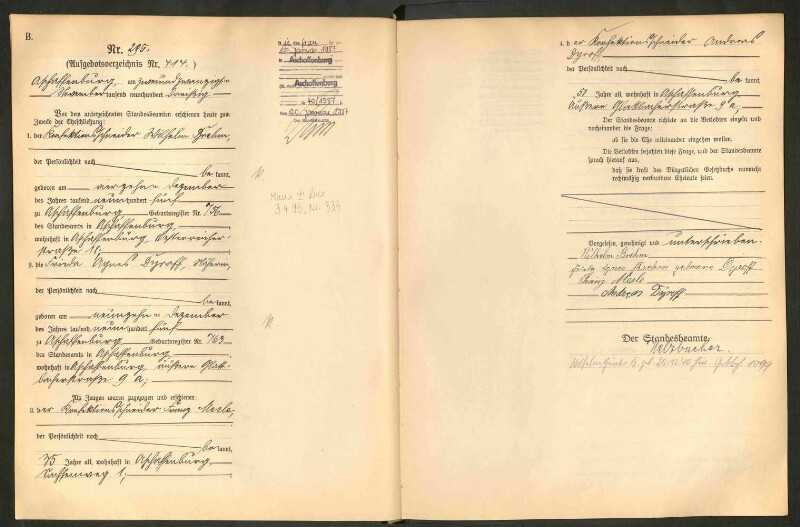 B.
Nr. 295.
(Aufgebotsverzeichnis Nr. 414.)
Aschaffenburg, am zweiundzwanzigsten
November tausend neunhundert dreißig
Vor dem unterzeichneten Standesbeamten erschienen heute zum
Zwecke der Eheschließung:
1. der Konfektionsschneider Wilhelm Brehm,
der Persönlichkeit nach
be kannt,
geboren am vierzehn ten Dezember
des Jahres tausend neunhundert fünf
zu Aschaffenburg Geburtsregister Nr. 756
des Standesamts in Aschaffenburg
wohnhaft in Aschaffenburg, Österreicher-
straße 11;
2. die Frieda Agnes Dyroff, Näherin,
der Persönlichkeit nach
be kannt,
geboren am neunzehn ten Dezember
des Jahres tausend neunhundert fünf
zu Aschaffenburg Geburtsregister Nr. 763
des Standesamts in Aschaffenburg
wohnhaft in Aschaffenburg, äußere Glatt-
bacherstraße 9 a;
Als Zeugen waren zugezogen und erschienen:
3. der Konfektionsschneider Franz Merlo,
der Persönlichkeit nach
be kannt,
35 Jahre alt, wohnhaft in Aschaffenburg,
1;
15. Januar 1957
Aschaffenburg
Aschaffenburg
40/1957
Mann † Nr. 333
4. der Konfektionsschneider Andreas
Dyroff,
der Persönlichkeit nach
be kannt,
51 Jahre alt, wohnhaft in Aschaffenburg
Äußere Glattbacherstraße 9 a;
Der Standesbeamte richtete an die Verlobten einzeln und
nacheinander die Frage:
ob sie die Ehe miteinander eingehen wollen.
Die Verlobten bejahten diese Frage, und der Standesbeamte
sprach hierauf aus,
daß sie kraft des Bürgerlichen Gesetzbuchs nunmehr
rechtmäßig verbundene Eheleute seien.
Vorgelesen, genehmigt und unterschrieben:
Wilhelm Brehm
Frieda Agnes Brehm geborene Dyroff
Franz Merlo
Andreas Dyroff
Der Standesbeamte.
Welzbacher.